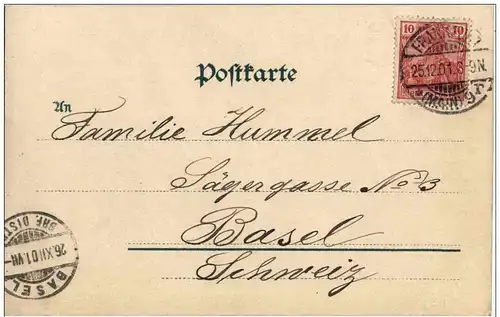 10 10
FRANKFURT
25.12.01. 8-9N.
(MAIN) 9
Postkarte
An
Familie Hummel
Sägergasse No 3
Basel
Schweiz
BRE. DIST
26.XII.01.VII-
BASEL